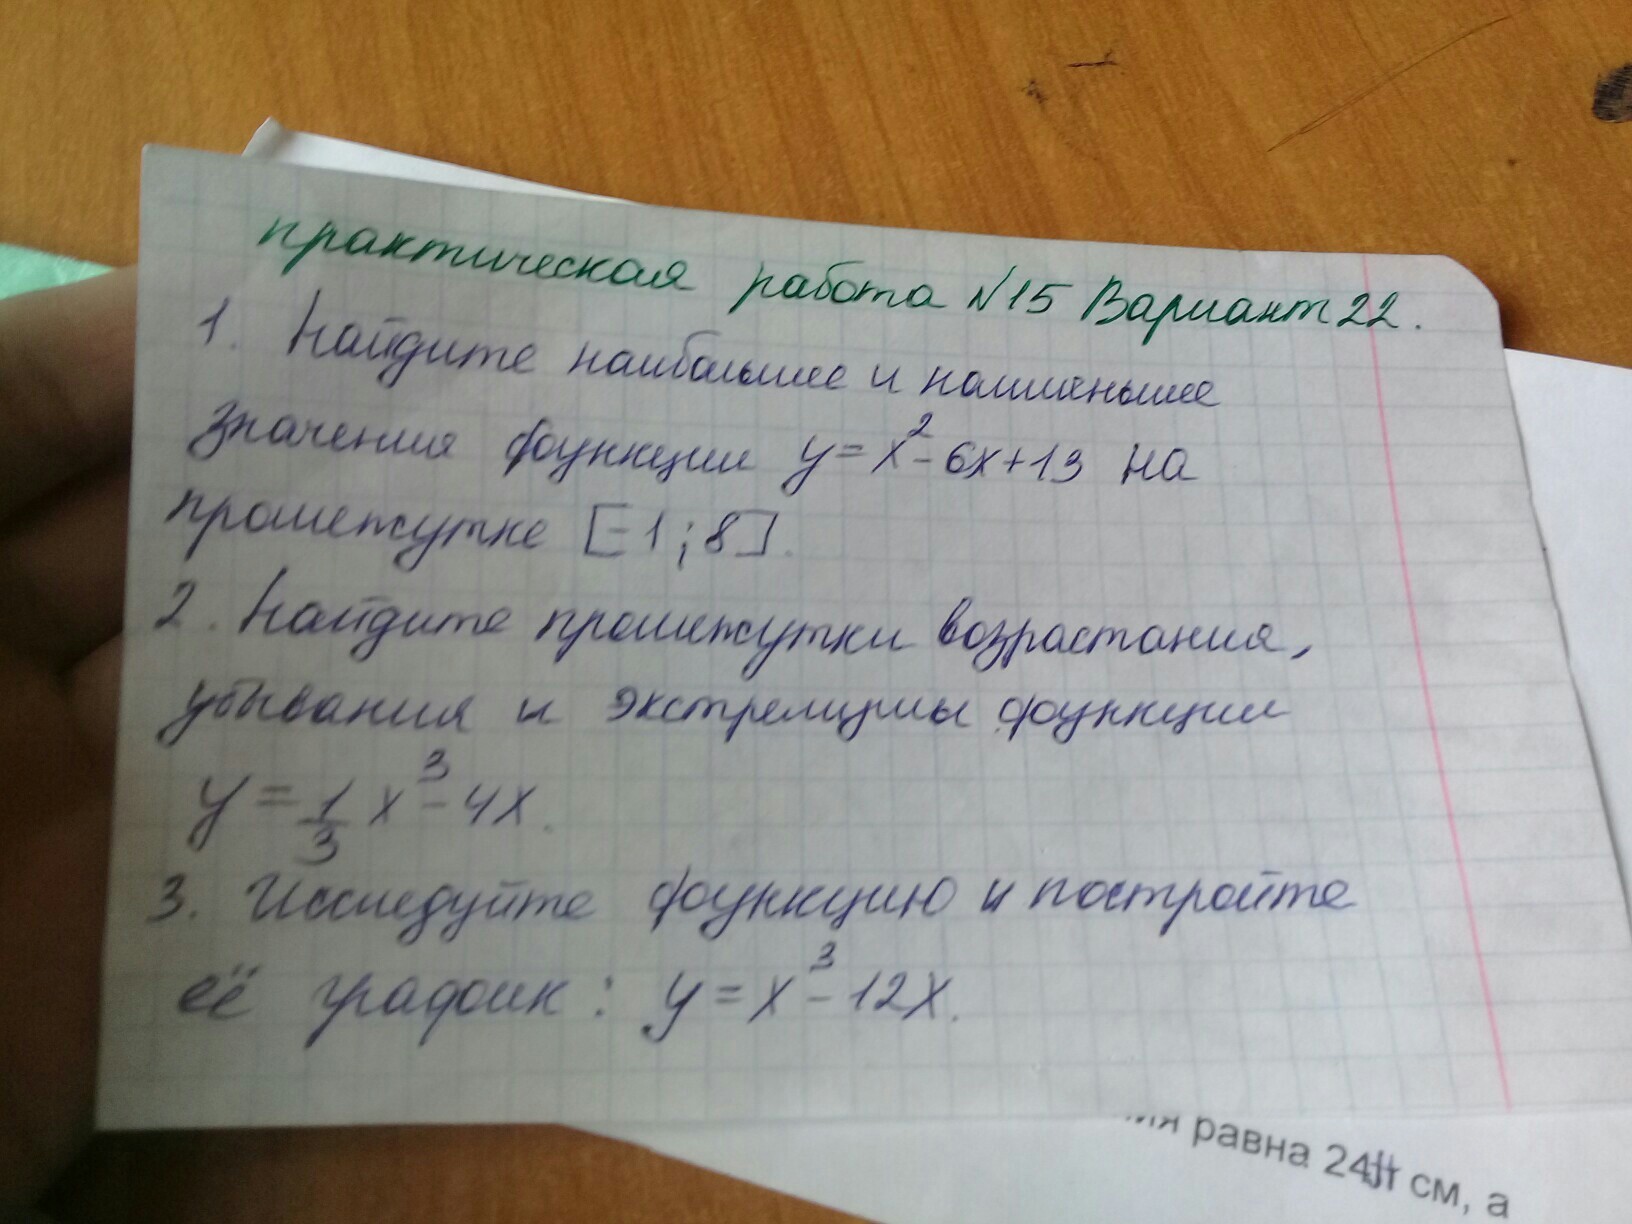 практическая работа №15 Вариант 22.
1. Найдите наибольшее и наименьшее
значения функции y=x²-6x+13 на
промежутке [-1;8].
2. Найдите промежутки возрастания,
убывания и экстремумы функции
y=1/3 x³-4x.
3. Исследуйте функцию и постройте
её график: y=x³-12x.
равна 24π см, а